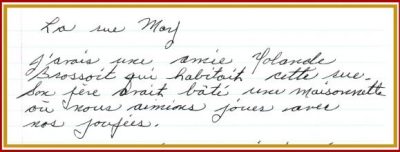 La rue May
J'avais une amie Yolande
Brossoit qui habitait cette rue.
Son père avait bâti une maisonnette
où nous aimions jouer avec
nos poupées.